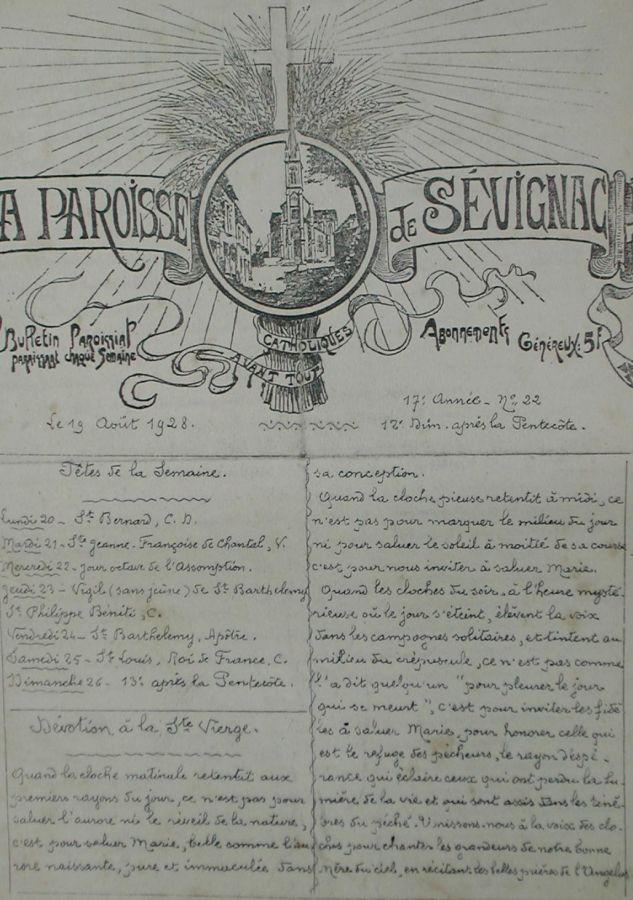 A PAROISSE
de SÉVIGNAC
Bulletin Paroissial
paraissant chaque Semaine
CATHOLIQUES
AVANT TOUT
Abonnements
Généreux: 5f
Le 19 Août 1928.
17e Année - No 22
12e Dim. après la Pentecôte.
Fêtes de la Semaine.
Lundi 20 - St Bernard, C. D.
Mardi 21 - Ste Jeanne-Françoise de Chantal, V.
Mercredi 22 - jour octave de l'Assomption.
Jeudi 23 - Vigil (sans jeûne) de St Barthelemy
St Philippe Béniti, C.
Vendredi 24 - St Barthelemy, Apôtre.
Samedi 25 - St Louis, Roi de France, C.
Dimanche 26 - 13e après la Pentecôte.
Dévotion à la Ste Vierge.
Quand la cloche matinale retentit aux
premiers rayons du jour, ce n'est pas pour
saluer l'aurore ni le réveil de la nature,
c'est pour saluer Marie, belle comme l'au
rore naissante, pure et immaculée dans
sa conception.
Quand la cloche pieuse retentit à midi, ce
n'est pas pour marquer le milieu du jour
ni pour saluer le soleil à moitié de sa course
c'est pour nous inviter à saluer Marie.
Quand les cloches du soir, à l'heure mysté-
rieuse où le jour s'éteint, élèvent la voix
dans les campagnes solitaires, et tintent au
milieu du crépuscule, ce n'est pas comme
l'a dit quelqu'un "pour pleurer le jour
qui se meurt", c'est pour inviter les fidè
les à saluer Marie, pour honorer celle qui
est le refuge des pécheurs, le rayon d'espé-
rance qui éclaire ceux qui ont perdu la lu-
mière de la vie et qui sont assis dans les ténè-
bres du péché. Unissons-nous à la voix des clo-
ches pour chanter les grandeurs de notre bonne
Mère du ciel, en récitant les belles prières de l'Angelus